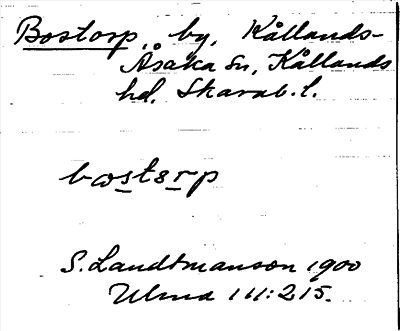 Bostorp, by, Kållands-
Åsaka sn, Kållands
hd. Skarab. l.
bωstɜrp
S. Landtmanson 1900
Ulma 111:215.